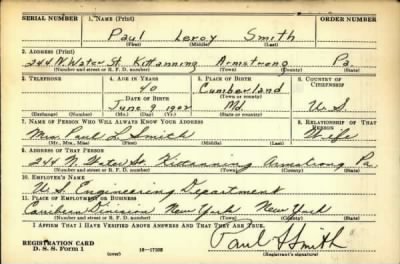 SERIAL NUMBER 1. NAME (Print) ORDER NUMBER
Paul Leroy Smith
(First) (Middle) (Last)
2. ADDRESS (Print)
244 N. Water St. Kittanning Armstrong Pa.
(Number and street or R. F. D. number) (Town) (County) (State)
3. TELEPHONE 4. AGE IN YEARS 5. PLACE OF BIRTH 6. COUNTRY OF CITIZENSHIP
40 Cumberland
DATE OF BIRTH (Town or county)
June 9 1902 Md U.S.
(Exchange) (Number) (Mo.) (Day) (Yr.) (State or country)
7. NAME OF PERSON WHO WILL ALWAYS KNOW YOUR ADDRESS 8. RELATIONSHIP OF THAT PERSON
Mrs. Paul L Smith Wife
(Mr., Mrs., Miss) (First) (Middle) (Last)
9. ADDRESS OF THAT PERSON
244 N. Water St. Kittanning Armstrong Pa.
(Number and street or R. F. D. number) (Town) (County) (State)
10. EMPLOYER'S NAME
U.S. Engineering Department
11. PLACE OF EMPLOYMENT OR BUSINESS
Division New York New York
(Number and street or R. F. D. number) (Town) (County) (State)
I AFFIRM THAT I HAVE VERIFIED ABOVE ANSWERS AND THAT THEY ARE TRUE.
REGISTRATION CARD
D. S. S. Form 1 (over) Paul L Smith
(Registrant's signature)